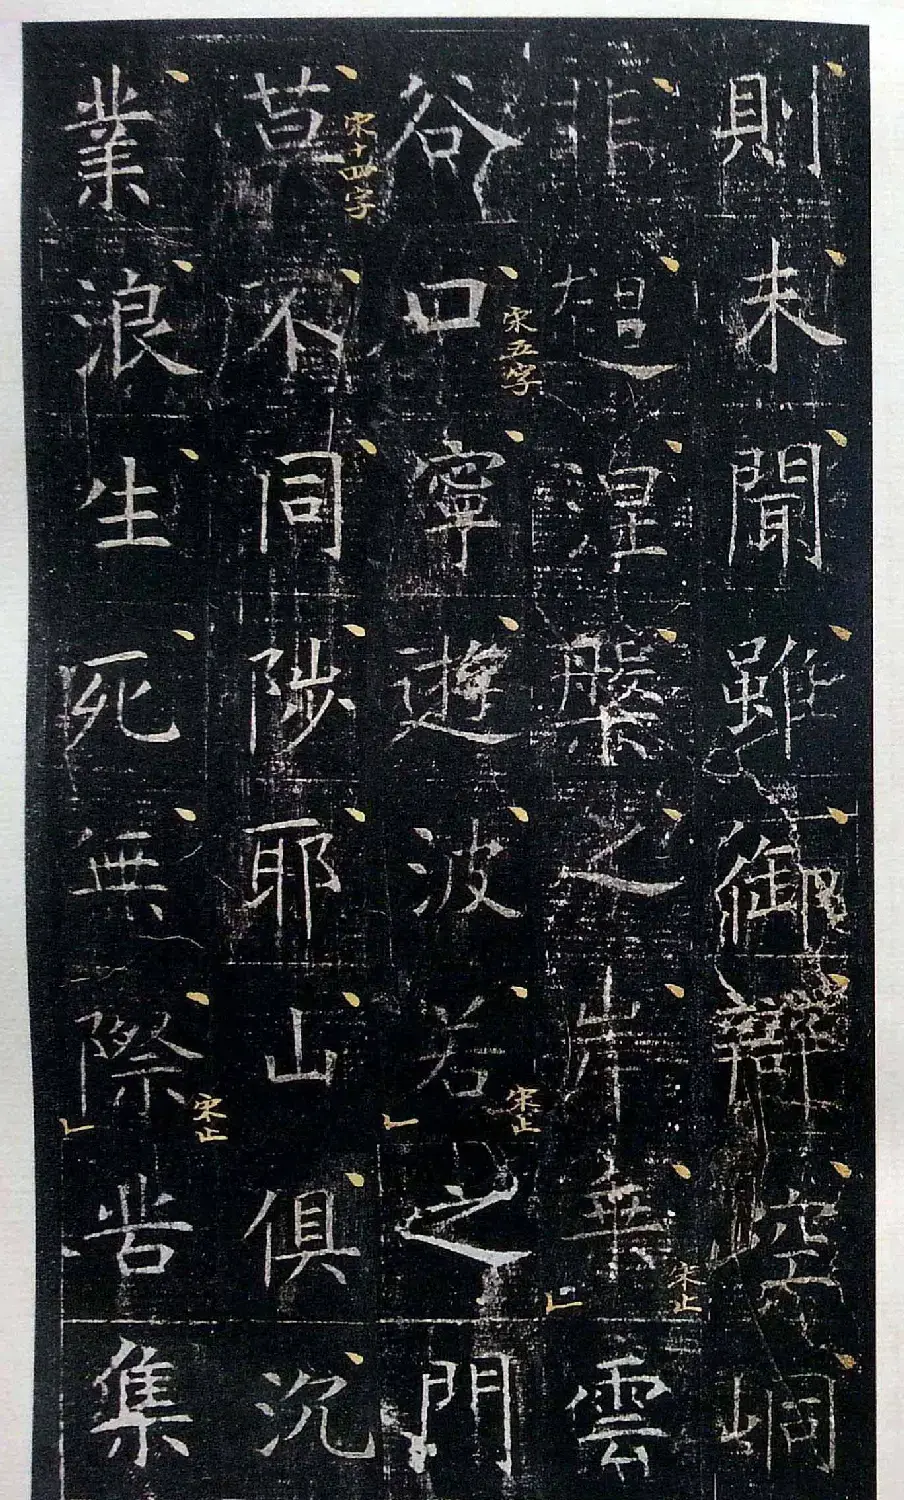 則未聞雖御辯空峒
非超涅槃之岸乘雲
宋止
谷口寧遊波若之門
宋五字
宋止
莫不同陟耶山俱沉
宋十四字
業浪生死無際苦集
宋止